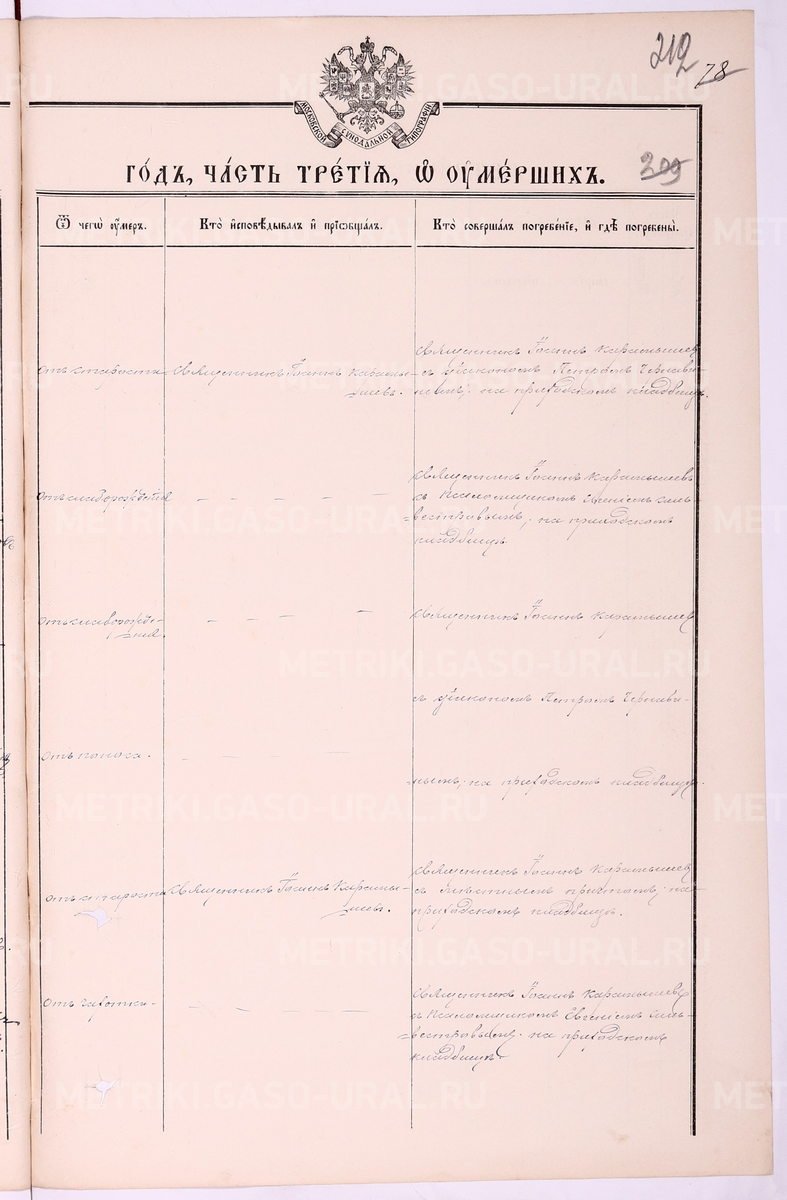 212
78
МОСКОВСКОЙ СѴНОДАЛЬНОЙ ТИПОГРАФІИ
ГО́ДЪ, ЧА́СТЬ ТРЕ́ТІѦ, Ѡ҆ ОУ҆МЕ́РШИХЪ.
209
Ѿ чегѡ̀ оу҆́меръ.
Кто̀ и҆сповѣ́дывалъ и҆ прїѡбща́лъ.
Кто̀ соверша́лъ погребе́нїе, и҆ гдѣ̀ погребены̀.
Отъ старости
Священникъ Іоаннъ Карамы-
шевъ.
Священникъ Іоаннъ Карамышевъ
съ діакономъ Петромъ
на приходскомъ кладбищѣ.
Отъ слаборожденія
– – – – –
Священникъ Іоаннъ Карамышевъ
съ Псаломщикомъ Евгеніемъ Силь-
вестровымъ, на приходскомъ
кладбищѣ.
Отъ слаборожде-
нія.
– – – –
Священникъ Іоаннъ Карамышевъ
съ діакономъ Петромъ
Отъ поноса.
– – – –
нымъ, на приходскомъ кладбищѣ.
Отъ старости
Священникъ Іоаннъ Карамы-
шевъ.
Священникъ Іоаннъ Карамышевъ
съ причтомъ, на
приходскомъ кладбищѣ.
Отъ чахотки
– – – – –
Священникъ Іоаннъ Карамышевъ
съ Псаломщикомъ Евгеніемъ Силь-
вестровымъ на приходскомъ
кладбищѣ.
METRIKI.GASO-URAL.RU